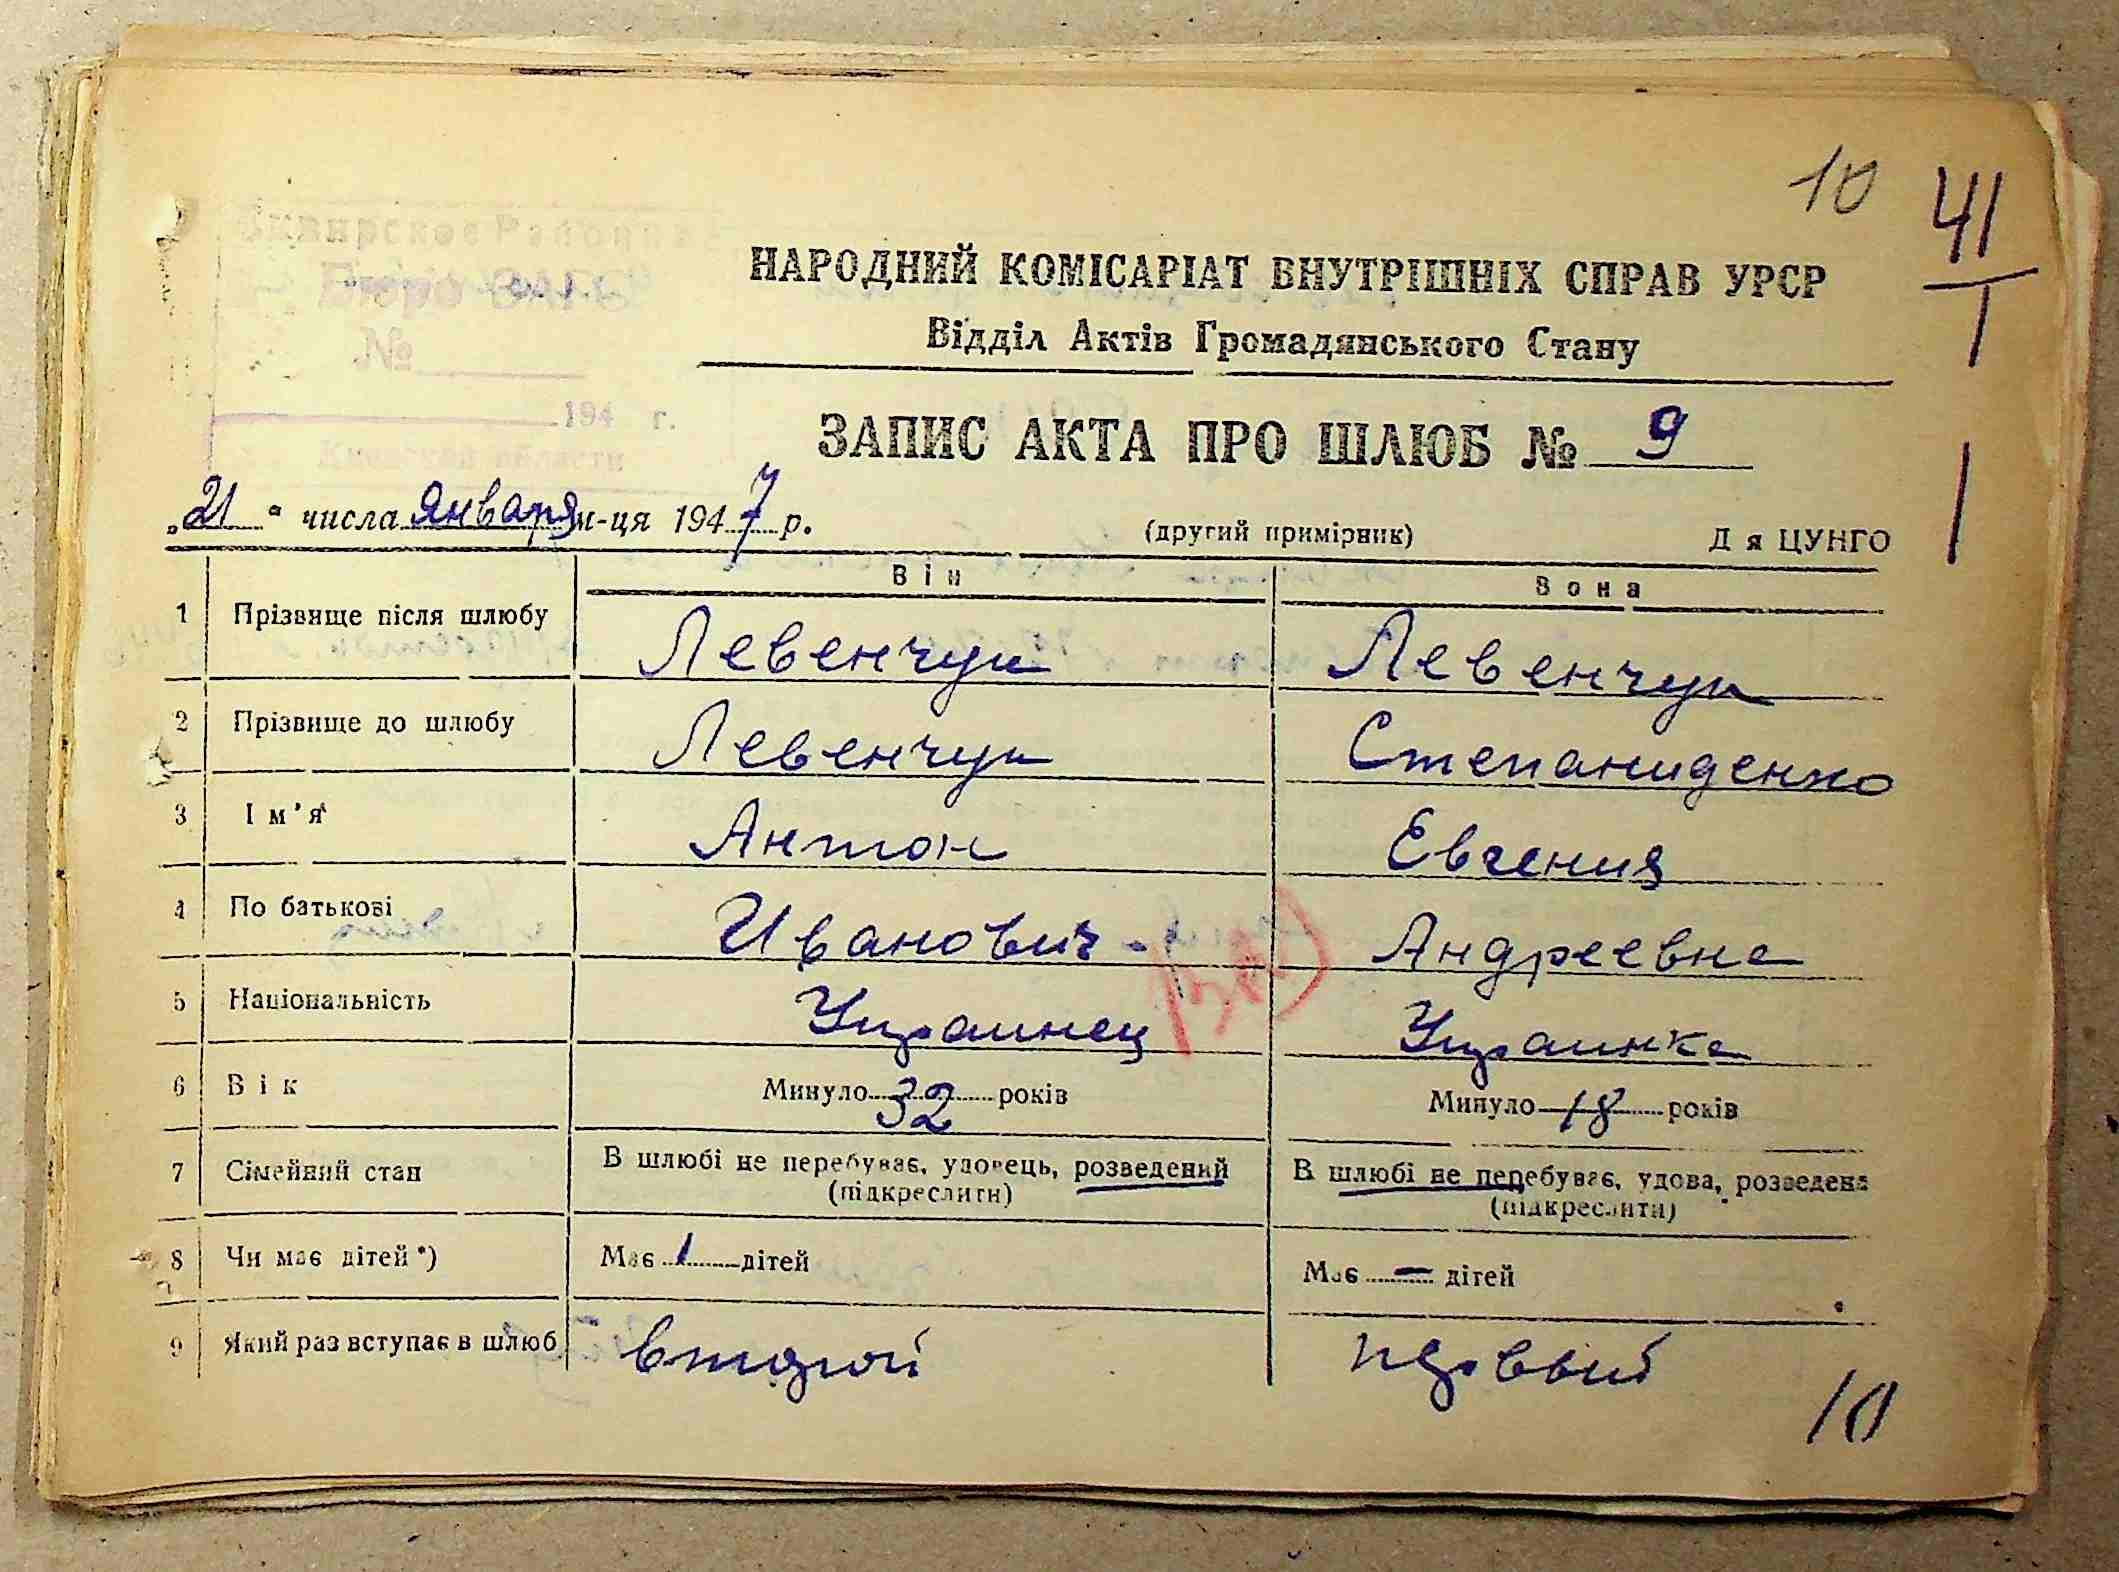 10
41
НАРОДНИЙ КОМІСАРІАТ ВНУТРІШНІХ СПРАВ УРСР
Відділ Актів Громадянського Стану
№
194 г.
ЗАПИС АКТА ПРО ШЛЮБ № 9
„21“ числа января м-ця 1947 р.
(другий примірник)
Д я ЦУНГО
Він
Вона
1 Прізвище після шлюбу Левенчук Левенчук
2 Прізвище до шлюбу Левенчук Степаниденко
3 Ім'я Антон Евгения
4 По батькові Иванович Андреевна
5 Національність Украинец Украинка
6 Вік Минуло 32 років Минуло 18 років
7 Сімейний стан В шлюбі не перебуває, удовець, розведений В шлюбі не перебуває, удова, розведена
(підкреслити) (підкреслити)
8 Чи має дітей *) Має 1 дітей Має — дітей
9 Який раз вступає в шлюб второй первый
10